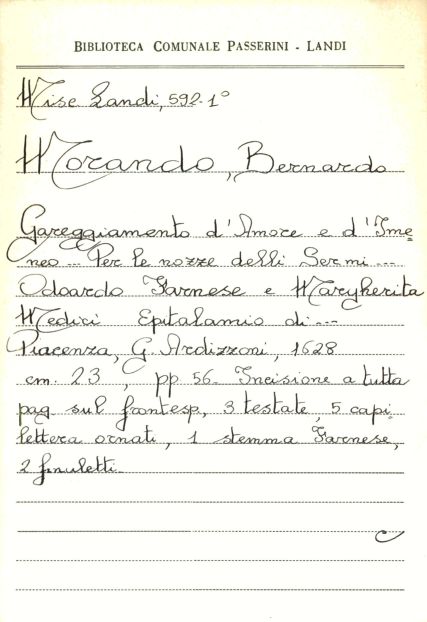 BIBLIOTECA COMUNALE PASSERINI - LANDI
Misc. Landi, 592. 1°
Morando, Bernardo
Gareggiamento d'Amore e d'Ime=
neo ... Per le nozze delli Ser.mi ...
Odoardo Farnese e Margherita
Medici Epitalamio di ...
Piacenza, G. Ardizzoni, 1628
cm. 23, pp 56. Incisione a tutta
pag. sul frontesp., 3 testate, 5 capi
lettera ornati, 1 stemma Farnese,
2 finaletti.